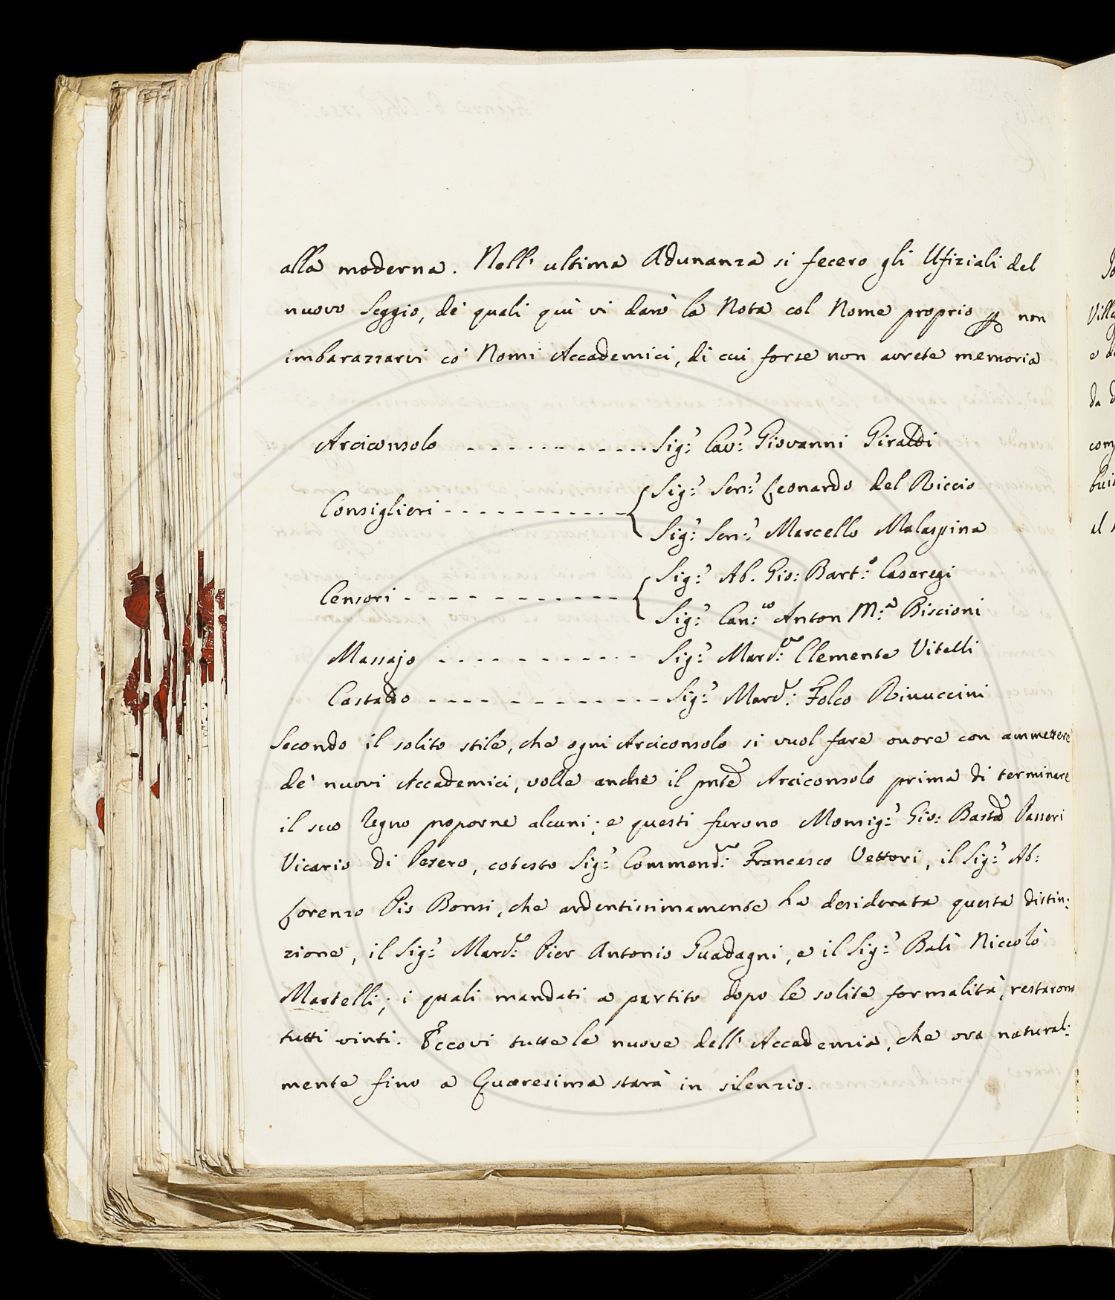 alla moderna. Nell' ultima Adunanza si fecero gli Ufiziali del
nuovo Seggio, de' quali quì vi darò la Nota col Nome proprio p non
imbarazzarvi co' Nomi Accademici, di cui forse non avrete memoria
Arciconsolo - - - - - - - - - - Sig.r Cav.r Giovanni Giraldi
Consiglieri - - - - - - - - - - { Sig.r Sen.r Leonardo del Riccio
Sig.r Sen.r Marcello Malaspina
Censori - - - - - - - - - - { Sig.r Ab. Gio: Bart.o Casaregi
Sig.r Can.co Anton M.a Biscioni
Massajo - - - - - - - - - - Sig.r March.e Clemente Vitelli
Castaldo - - - - - - - - - - Sig.r March.e Folco Rinuccini
Secondo il solito stile, che ogni Arciconsolo si vuol fare onore con ammettere
de' nuovi Accademici, volle anche il pnte Arciconsolo prima di terminare
il suo Regno proporne alcuni; e questi furono Monsig.r Gio: Batta Passeri
Vicario di Pesero, cotesto Sig.r Commend.re Francesco Vettori, il Sig.r Ab:
Lorenzo Pio Bonsi, che ardentissimamente ha desiderata questa distin:
zione, il Sig.r March.e Pier Antonio Guadagni, e il Sig.r Balì Niccolò
Martelli; i quali mandati a partito dopo le solite formalità, restarono
tutti vinti. Eccovi tutte le nuove dell' Accademia, che ora natural:
mente fino a Quaresima starà in silenzio.